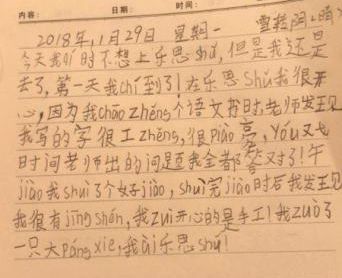 内容: 日期: 时间:
2018年,11月29日 星期一
今天我 时不想上乐思shú,但是我还是
去了,第一天我chí到了!在乐思Shú我很开
心,因为我chāo zhěng个语文书时,老师发王见
我写的字很工zhěng,很piào亮,yóu又
时间老师出的问题我全都答对了!午
jiào我shuì了个好jiào,shuì完jiào时后我发王见
我很有jīng shén,我zuì开心的是手工!我zuò了
一只大páng xiè,我ài乐思shú!